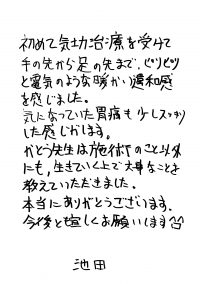 初めて気功治療を受けて
手の先から足の先まで、ピリピリ
と電気のような暖かい違和感
を感じました。
気になっていた胃痛も少しスッキリ
した感じがします。
がとう先生は施術のこと以外
にも、生きていく上で大事なことを
教えていただきました。
本当にありがとうございます。
今後とも宜しくお願いします^^
池田